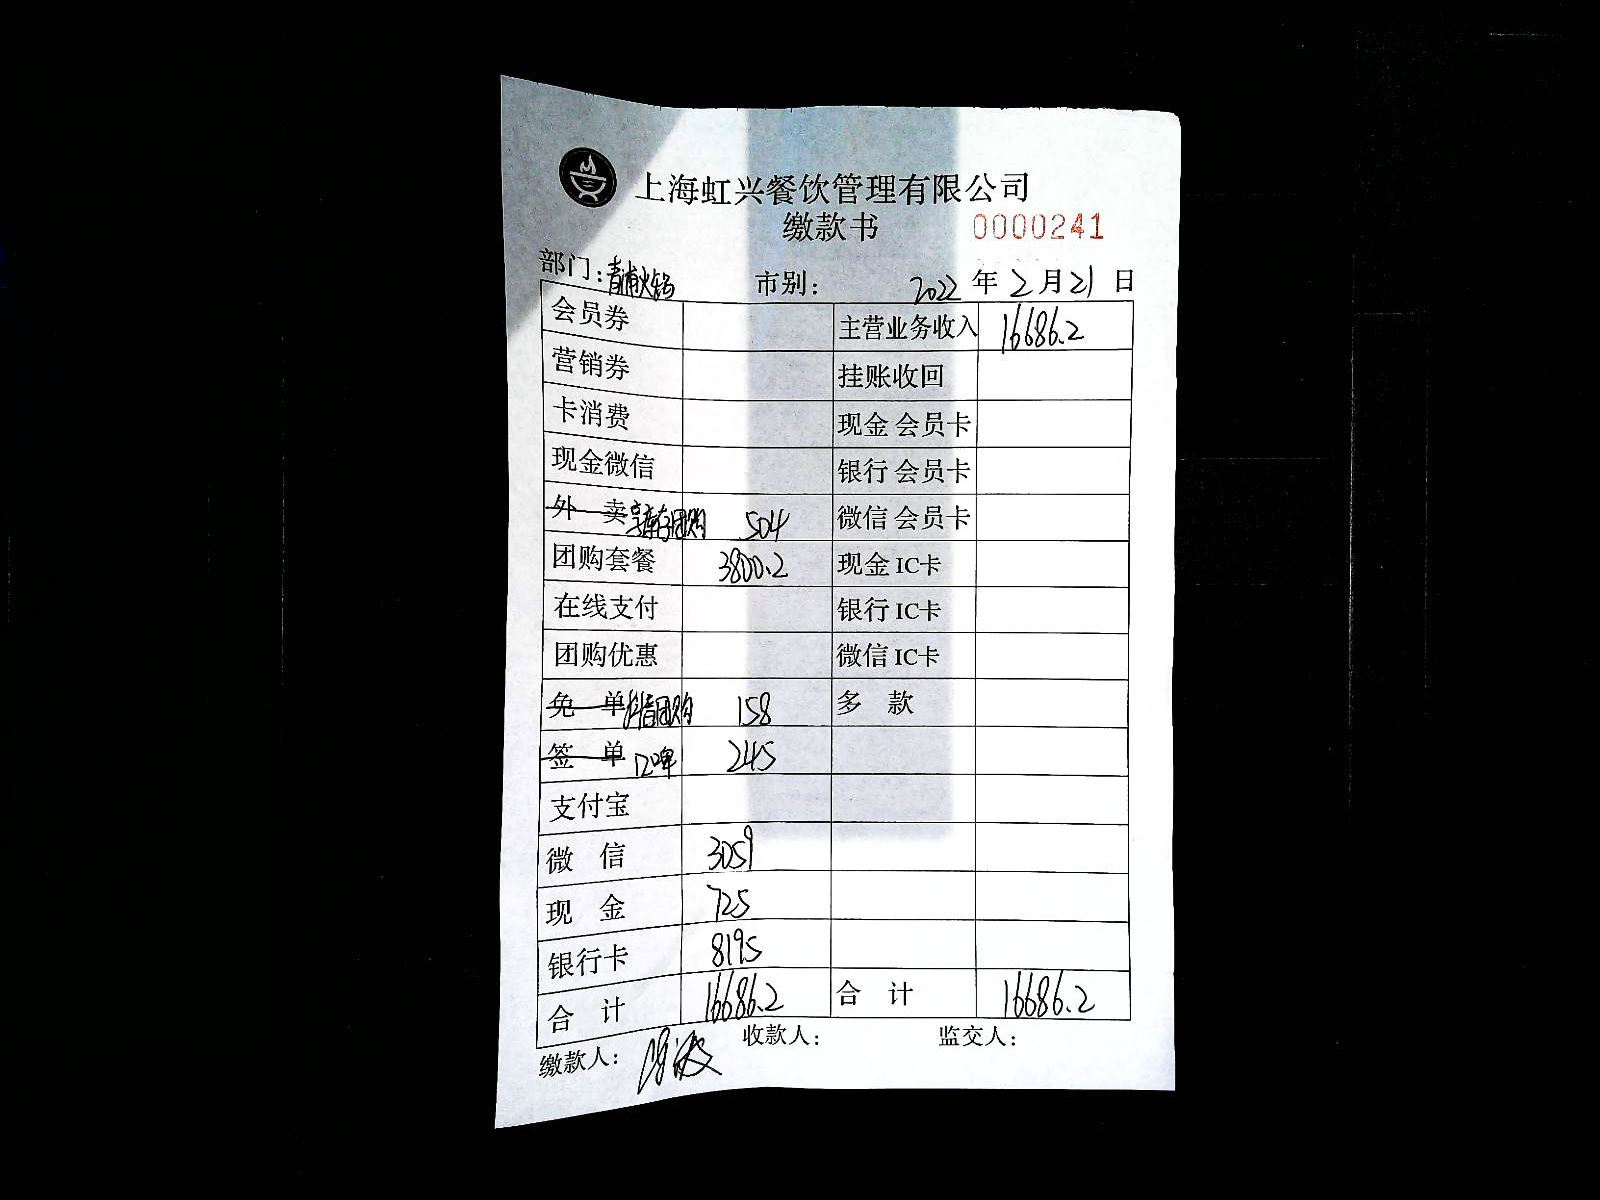 上海虹兴餐饮管理有限公司
缴款书 0000241
部门：青浦火锅 市别： 2022 年 2 月 21 日
会员券 主营业务收入 16686.2
营销券 挂账收回
卡消费 现金 会员卡
现金微信 银行 会员卡
外 卖 库存团购 504 微信 会员卡
团购套餐 3800.2 现金 IC卡
在线支付 银行 IC卡
团购优惠 微信 IC卡
免 单 抖音团购 158 多 款
签 单 口啤 245
支付宝
微 信 3059
现 金 725
银行卡 8195
合 计 16686.2 合 计 16686.2
缴款人： 收款人： 监交人：